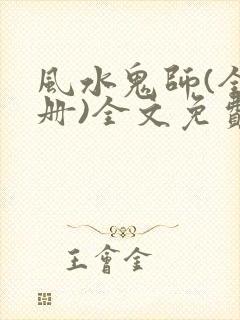 風水鬼師(全
册)全文免費
王會全